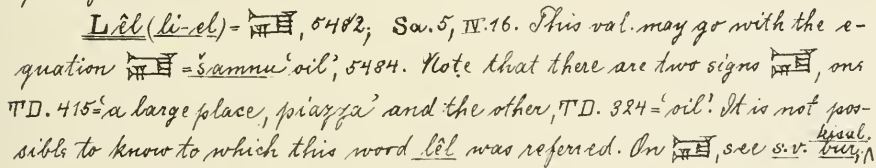 Lêl (li-el) = 𒉌𒁺, 5482; Sa. 5, IV. 16. This val. may go with the e-
quation = šamnu 'oil', 5484. Note that there are two signs , one
TD. 415 = 'a large place, piazza' and the other, TD. 324 = 'oil'. It is not pos-
sible to know to which this word lêl was referred. On , see s.v.
kisal.
bur,